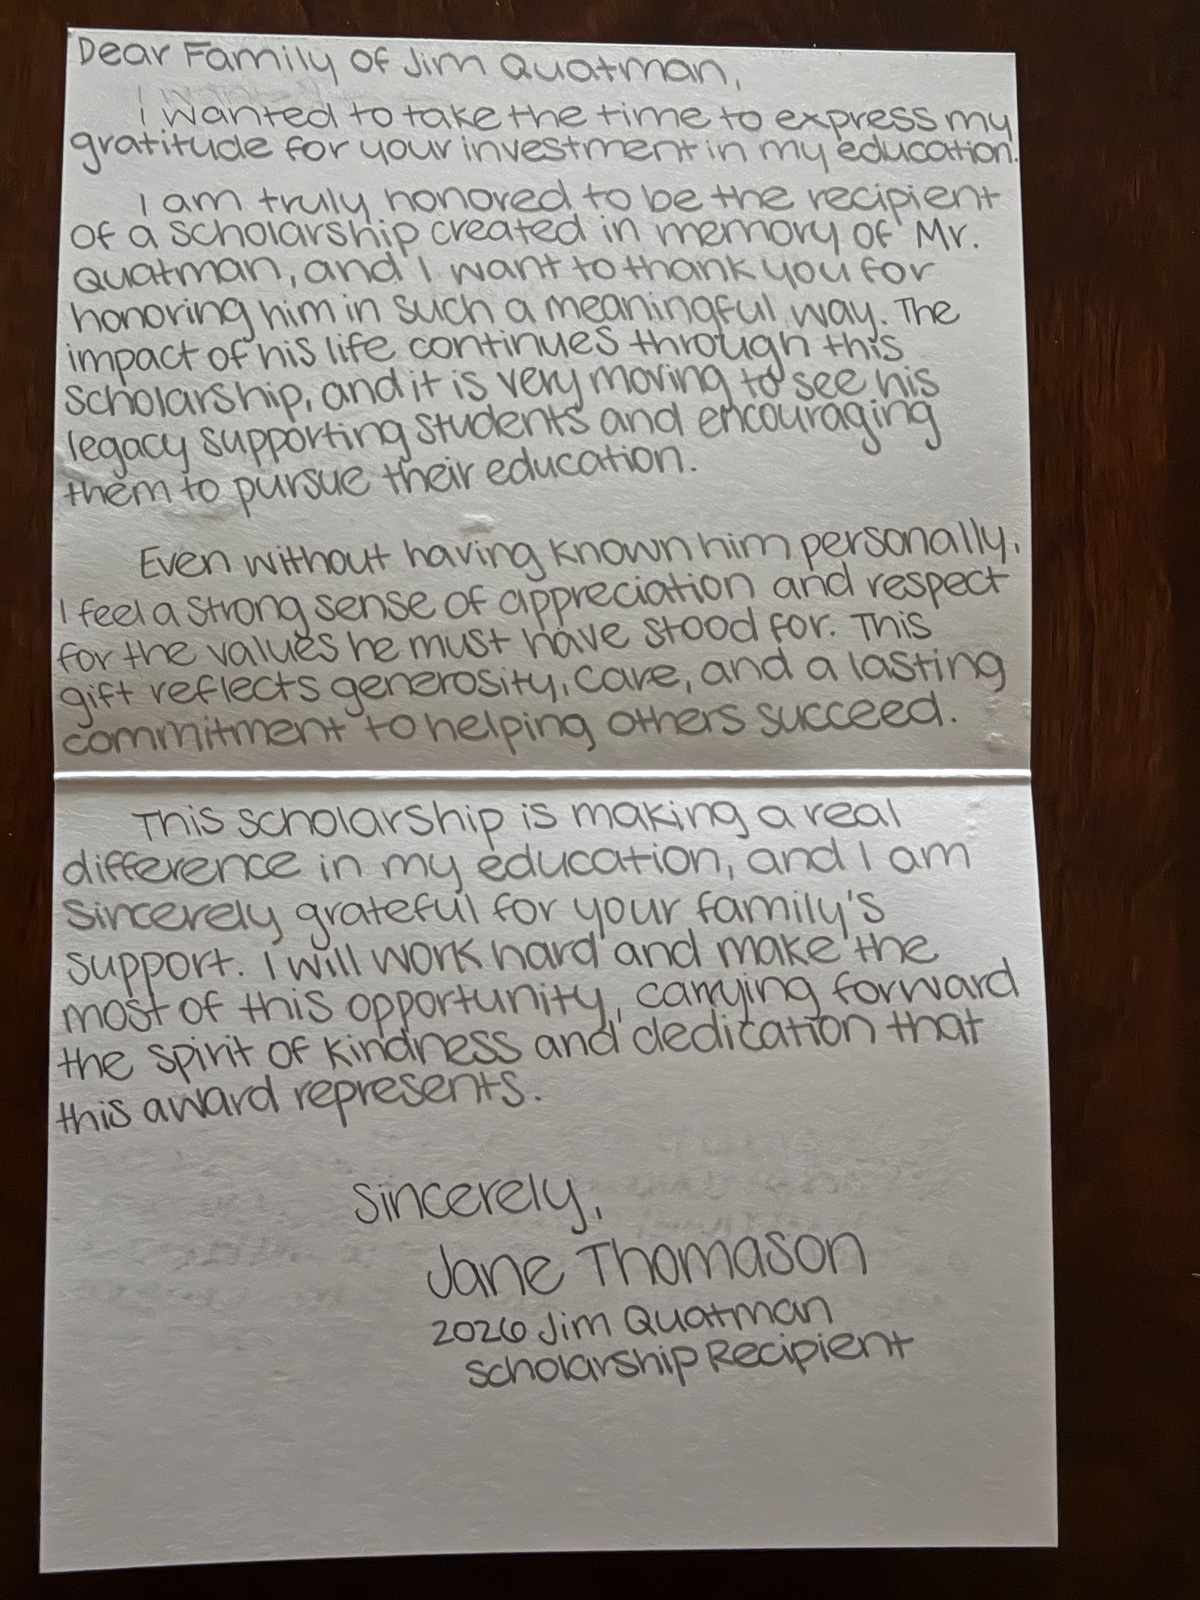 Dear Family of Jim Quatman,
I wanted to take the time to express my
gratitude for your investment in my education.
I am truly honored to be the recipient
of a scholarship created in memory of Mr.
Quatman, and I want to thank you for
honoring him in such a meaningful way. The
impact of his life continues through this
scholarship, and it is very moving to see his
legacy supporting students and encouraging
them to pursue their education.
Even without having known him personally,
I feel a strong sense of appreciation and respect
for the values he must have stood for. This
gift reflects generosity, care, and a lasting
commitment to helping others succeed.
This scholarship is making a real
difference in my education, and I am
sincerely grateful for your family's
support. I will work hard and make the
most of this opportunity, carrying forward
the spirit of kindness and dedication that
this award represents.
Sincerely,
Jane Thomason
2026 Jim Quatman
Scholarship Recipient